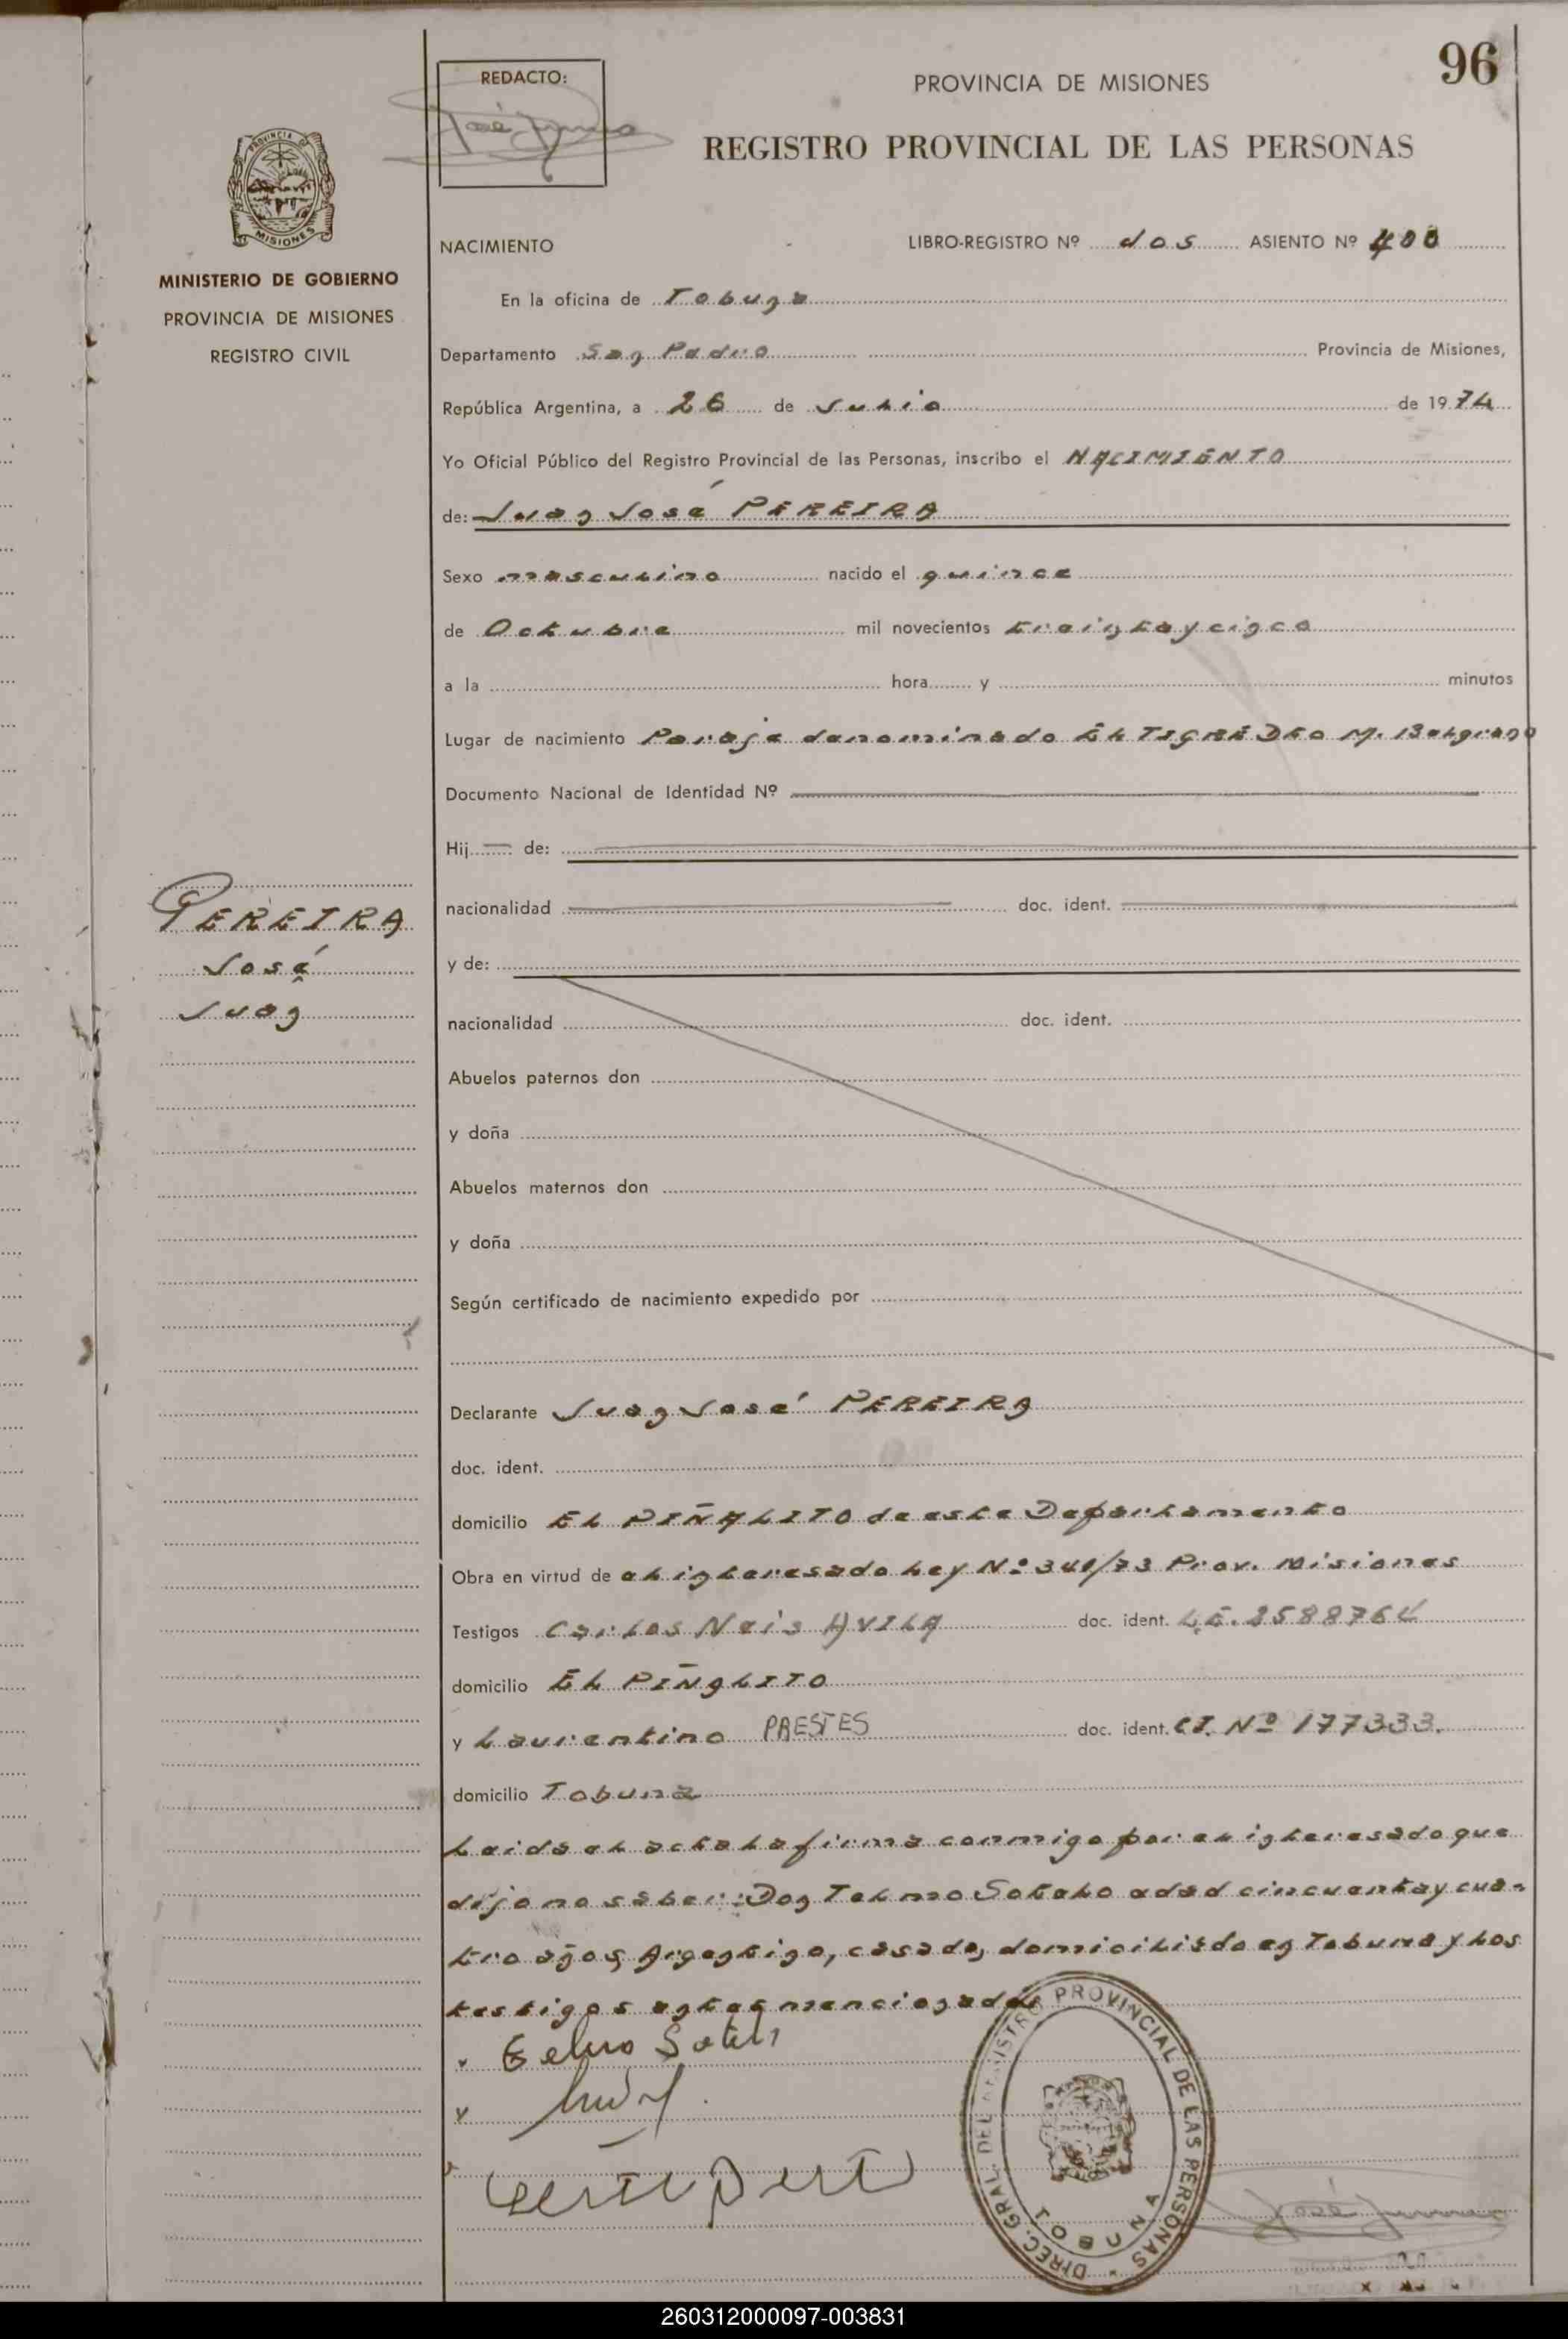 96
REDACTO:
PROVINCIA DE MISIONES
REGISTRO PROVINCIAL DE LAS PERSONAS
PROVINCIA D
MISIONES
MINISTERIO DE GOBIERNO
PROVINCIA DE MISIONES
REGISTRO CIVIL
NACIMIENTO LIBRO-REGISTRO Nº dos ASIENTO Nº 400
En la oficina de Tobuna
Departamento San Pedro Provincia de Misiones,
República Argentina, a 26 de Julio de 1974
Yo Oficial Público del Registro Provincial de las Personas, inscribo el NACIMIENTO
de: Juan José PEREIRA
Sexo masculino nacido el quince
de Octubre mil novecientos treinta y cinco
a la hora y minutos
Lugar de nacimiento Paraje denominado EL TIGRE DTO M. Belgrano
Documento Nacional de Identidad Nº
Hij de:
PEREIRA
José
Juan
nacionalidad doc. ident.
y de:
nacionalidad doc. ident.
Abuelos paternos don
y doña
Abuelos maternos don
y doña
Según certificado de nacimiento expedido por
Declarante Juan José PEREIRA
doc. ident.
domicilio EL PIÑALITO de este Departamento
Obra en virtud de el interesado Ley Nº 340/73 Prov. Misiones
Testigos Carlos Neis AVILA doc. ident. L.E. 2588764
domicilio EL PIÑALITO
y Laurentino PRESTES doc. ident. CI. Nº 177333.
domicilio Tobuna
Leida el acta la firma conmigo por el interesado que
dijo no saber: Don Telmo Sotelo edad cincuenta y cua-
tro años, Argentino, casado, domiciliado en Tobuna y los
testigos antes mencionados
Telmo Sotelo
DIREC. GRAL. DEL REGISTRO PROVINCIAL DE LAS PERSONAS
TOBUNA
260312000097-003831